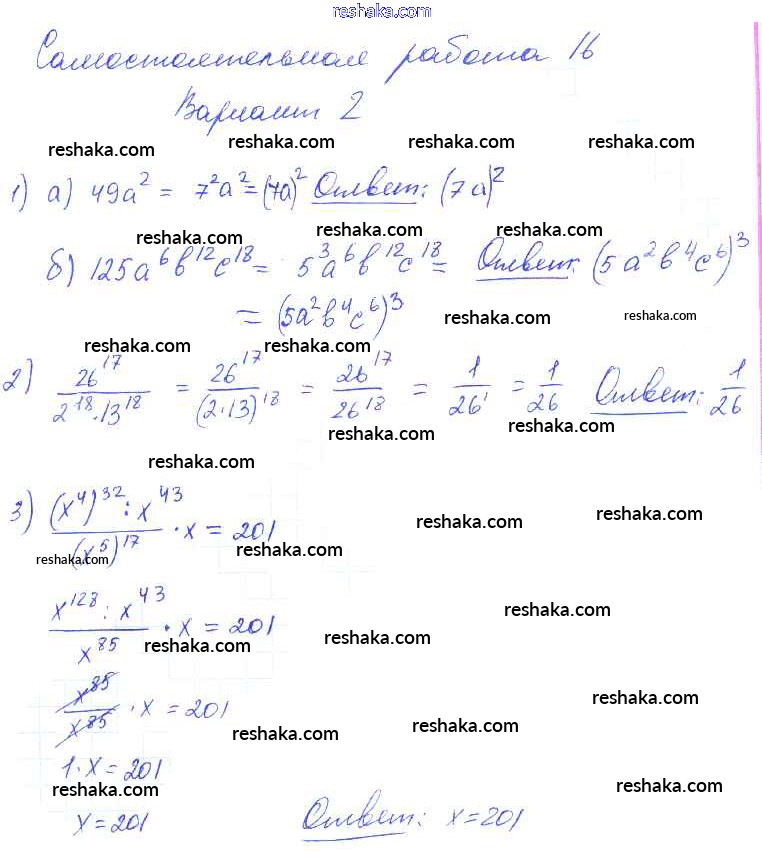 reshaka.com
Самостоятельная работа 16
Вариант 2
reshaka.com reshaka.com reshaka.com reshaka.com
1) а) 49a² = 7²a² = (7a)² Ответ: (7a)²
reshaka.com reshaka.com reshaka.com
б) 125a⁶b¹²c¹⁸ = 5³a⁶b¹²c¹⁸ = Ответ: (5a²b⁴c⁶)³
= (5a²b⁴c⁶)³ reshaka.com reshaka.com
reshaka.com reshaka.com
2) 26¹⁷/(2¹⁸·13¹⁸) = 26¹⁷/(2·13)¹⁸ = 26¹⁷/26¹⁸ = 1/26¹ = 1/26 Ответ: 1/26
reshaka.com reshaka.com
reshaka.com
3) ((x⁴)³² : x⁴³)/(x⁵)¹⁷ · x = 201
reshaka.com reshaka.com
reshaka.com reshaka.com
(x¹²⁸ : x⁴³)/x⁸⁵ · x = 201
reshaka.com reshaka.com reshaka.com
x⁸⁵/x⁸⁵ · x = 201
reshaka.com reshaka.com reshaka.com
1·x = 201
reshaka.com
x = 201 Ответ: x = 201